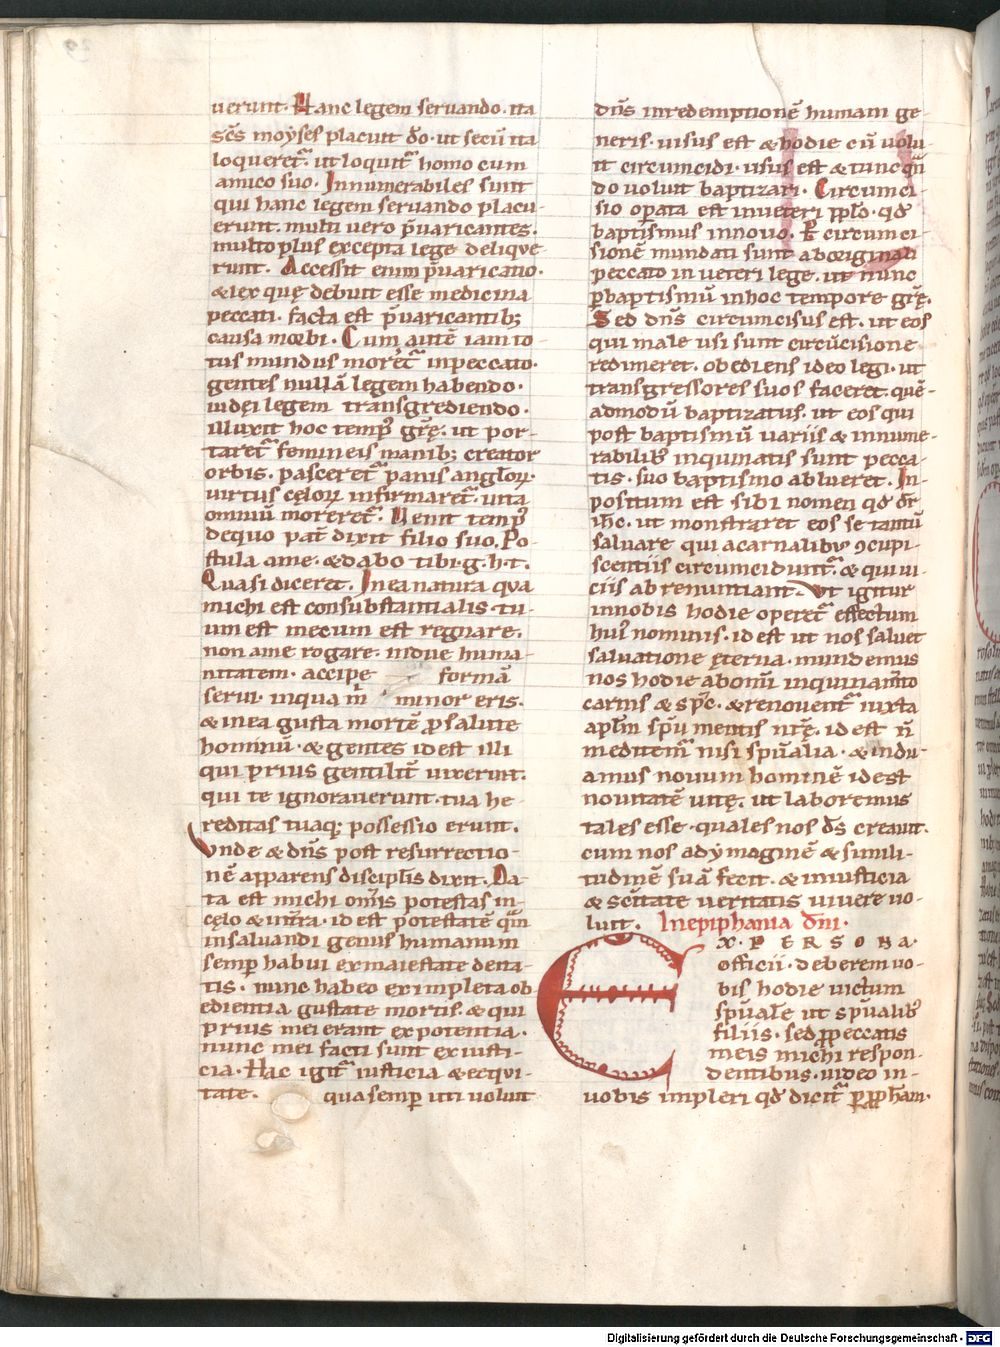 uerunt. Hanc legem seruando. ita
sc̄s moyses placuit d̄o. ut secū ita
loqueret̃. ut loquit̃ homo cum
amico suo. Innumerabiles sunt
qui hanc legem seruando placu-
erunt. multi uero p̄uaricantes.
multo plus excepta lege delique-
runt. Accessit enim p̄uaricatio.
& lex quę debuit esse medicina
peccati. facta est p̄uaricantib;
causa morbi. Cum autē iam to
tus mundus moreret̃ in peccato.
gentes nullā legem habendo.
iudęi legem transgrediendo.
illuxit hoc temp᷒ grę̄. ut por-
taret̃ femineis manib; creator
orbis. pasceret̃ panis anglorꝝ.
uirtus cęlorꝝ infirmaret̃. uita
omniū moreret̃. Uenit temp᷒
de quo pat̄ dixit filio suo. Po-
stula a me. & dabo tibi.g.h.t.
Quasi diceret. In ea natura qua
michi est consubstantialis. tu-
um est mecum est regnare.
non a me rogare. indue huma-
nitatem. accipe formā
serui. in qua m̄ minor eris.
& in ea gusta mortē pro salute
hominū. & gentes id est illi
qui prius gentilit̄ uixerunt.
qui te ignorauerunt. tua he-
reditas tuaq; possessio erunt.
Unde & dn̄s post resurrectio-
nē apparens discipl̄is dixit. Da-
ta est michi om̄is potestas in
cęlo & in t̄ra. id est potestatē quā
in saluandi genus humanum
semp̲ habui ex maiestate deita-
tis. nunc habeo ex impleta ob-
edientia gustate mortis. & qui
prius mei erant ex potentia.
nunc mei facti sunt ex iusti-
cia. Hac igit̃ iusticia & ęqui-
tate. qua semp̲ uti uoluit
dn̄s in redemptionē humani ge-
neris. uisus est & hodie cū uolu-
it circumcidi. usus est & tunc qn̄
do uoluit baptizari. Circumci-
sio operata est in ueteri pplo. qd̄
baptismus in nouo. Per circumci-
sionē mundati sunt ab originali
peccato in ueteri lege. ut nunc
p̲ baptismū in hoc tempore grę̄.
Sed dn̄s circumcisus est. ut eos
qui male usi sunt circūcisione
redimeret. obediens ideo legi. ut
transgressores suos faceret. quē-
admodū baptizatus. ut eos qui
post baptismū uariis & innume-
rabilib᷒ inquinatis sunt pecca-
tis. suo baptismo ablueret. In-
positum est sibi nomen qd̄ dr̄
ih̄c. ut monstraret eos se tantū
saluare qui a carnalib᷒ ↄcupi-
scentiis circumcidunt̃. & qui ui-
ciis abrenuntiant. Ut igitur
in nobis hodie operet̃ effectum
hui᷒ nominis. id est ut nos saluet
saluatione ęterna. mundemus
nos hodie ab om̄i inquinam̄to
carnis & sp̄c. & renouent̃ iuxta
apl̄m sp̄u mentis nr̄ę. id est n̄
meditem̃ nisi sp̄ualia. & indu-
amus nouum hominē id est
nouitatē uitę. ut laboremus
tales esse. quales nos d̄s creauit.
cum nos ad ymaginē & simili-
tudinē suā fecit. & in iusticia
& sc̄itate ueritatis uiuere uo-
luit. In epiphania dn̄i.
Ex. PERSONA.
officii. deberem uo-
bis hodie uictum
sp̄uale ut sp̄ualib᷒
filiis. sed ꝓ peccatis
meis michi respon-
dentibus. uideo in
uobis impleri qd̄ dicit̃ p̲ ꝓph̄am.
Digitalisierung gefördert durch die Deutsche Forschungsgemeinschaft - DFG